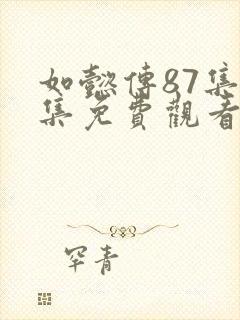 如懿傳87集
集免費觀看
罕青